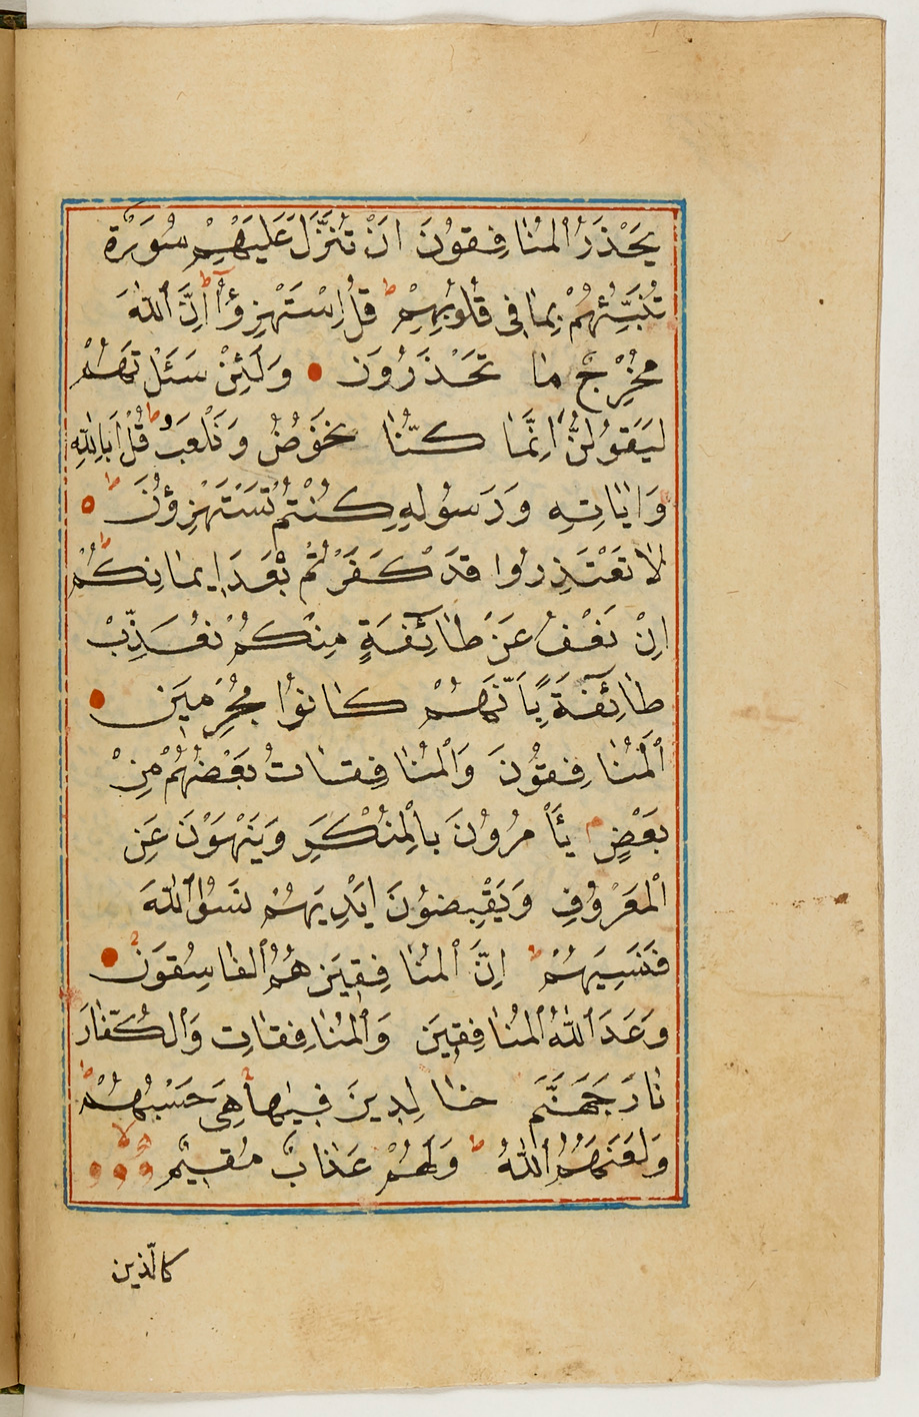 يَحْذَرُ ٱلْمُنَافِقُونَ اَنْ تُنَزَّلَ عَلَيْهِمْ سُورَةٌ
تُنَبِّئُهُمْ بِمَا فِي قُلُوبِهِمْ ط قُلِ اسْتَهْزِؤُٓا ج اِنَّ ٱللّٰهَ
مُخْرِجٌ مَا تَحْذَرُونَ وَلَئِنْ سَئَلْتَهُمْ
لَيَقُولُنَّ اِنَّمَا كُنَّا نَخُوضُ وَنَلْعَبُ ط قُلْ اَبِاللّٰهِ
وَاٰيَاتِهِ وَرَسُولِهِ كُنْتُمْ تَسْتَهْزِؤُنَ ط
لَا تَعْتَذِرُوا قَدْ كَفَرْتُمْ بَعْدَ اِيمَانِكُمْ ط
اِنْ نَعْفُ عَنْ طَائِفَةٍ مِنْكُمْ نُعَذِّبْ
طَائِفَةً بِاَنَّهُمْ كَانُوا مُجْرِمِينَ
اَلْمُنَافِقُونَ وَٱلْمُنَافِقَاتُ بَعْضُهُمْ مِنْ
بَعْضٍ م يَأْمُرُونَ بِالْمُنْكَرِ وَيَنْهَوْنَ عَنِ
ٱلْمَعْرُوفِ وَيَقْبِضُونَ اَيْدِيَهُمْ نَسُوا ٱللّٰهَ
فَنَسِيَهُمْ ط اِنَّ ٱلْمُنَافِقِينَ هُمُ ٱلْفَاسِقُونَ
وَعَدَ ٱللّٰهُ ٱلْمُنَافِقِينَ وَٱلْمُنَافِقَاتِ وَٱلْكُفَّارَ
نَارَ جَهَنَّمَ خَالِدِينَ فِيهَا هِيَ حَسْبُهُمْ ط
وَلَعَنَهُمُ ٱللّٰهُ ط وَلَهُمْ عَذَابٌ مُقِيمٌ لا
كالّذين